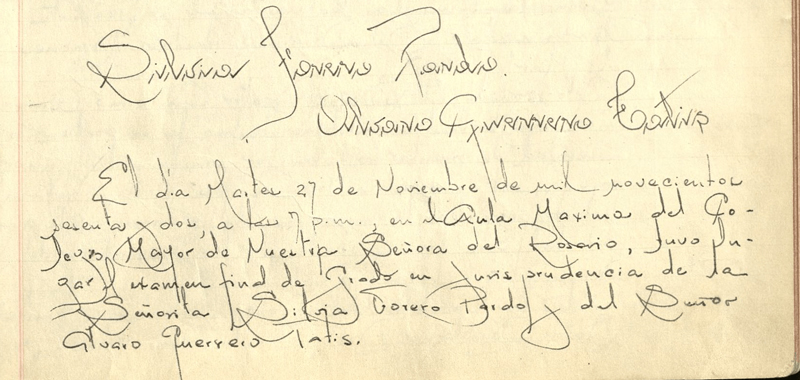 Silvia Forero Pardo.
Alvaro Guerrero Tatis
El día Martes 27 de Noviembre de mil novecientos
sesenta y dos, a las 7 p.m., en el Aula Maxima del Co-
legio Mayor de Nuestra Señora del Rosario, tuvo lu-
gar el examen final de Grado en Jurisprudencia de la
Señorita Silvia Forero Pardo y del Señor
Alvaro Guerrero Tatis.